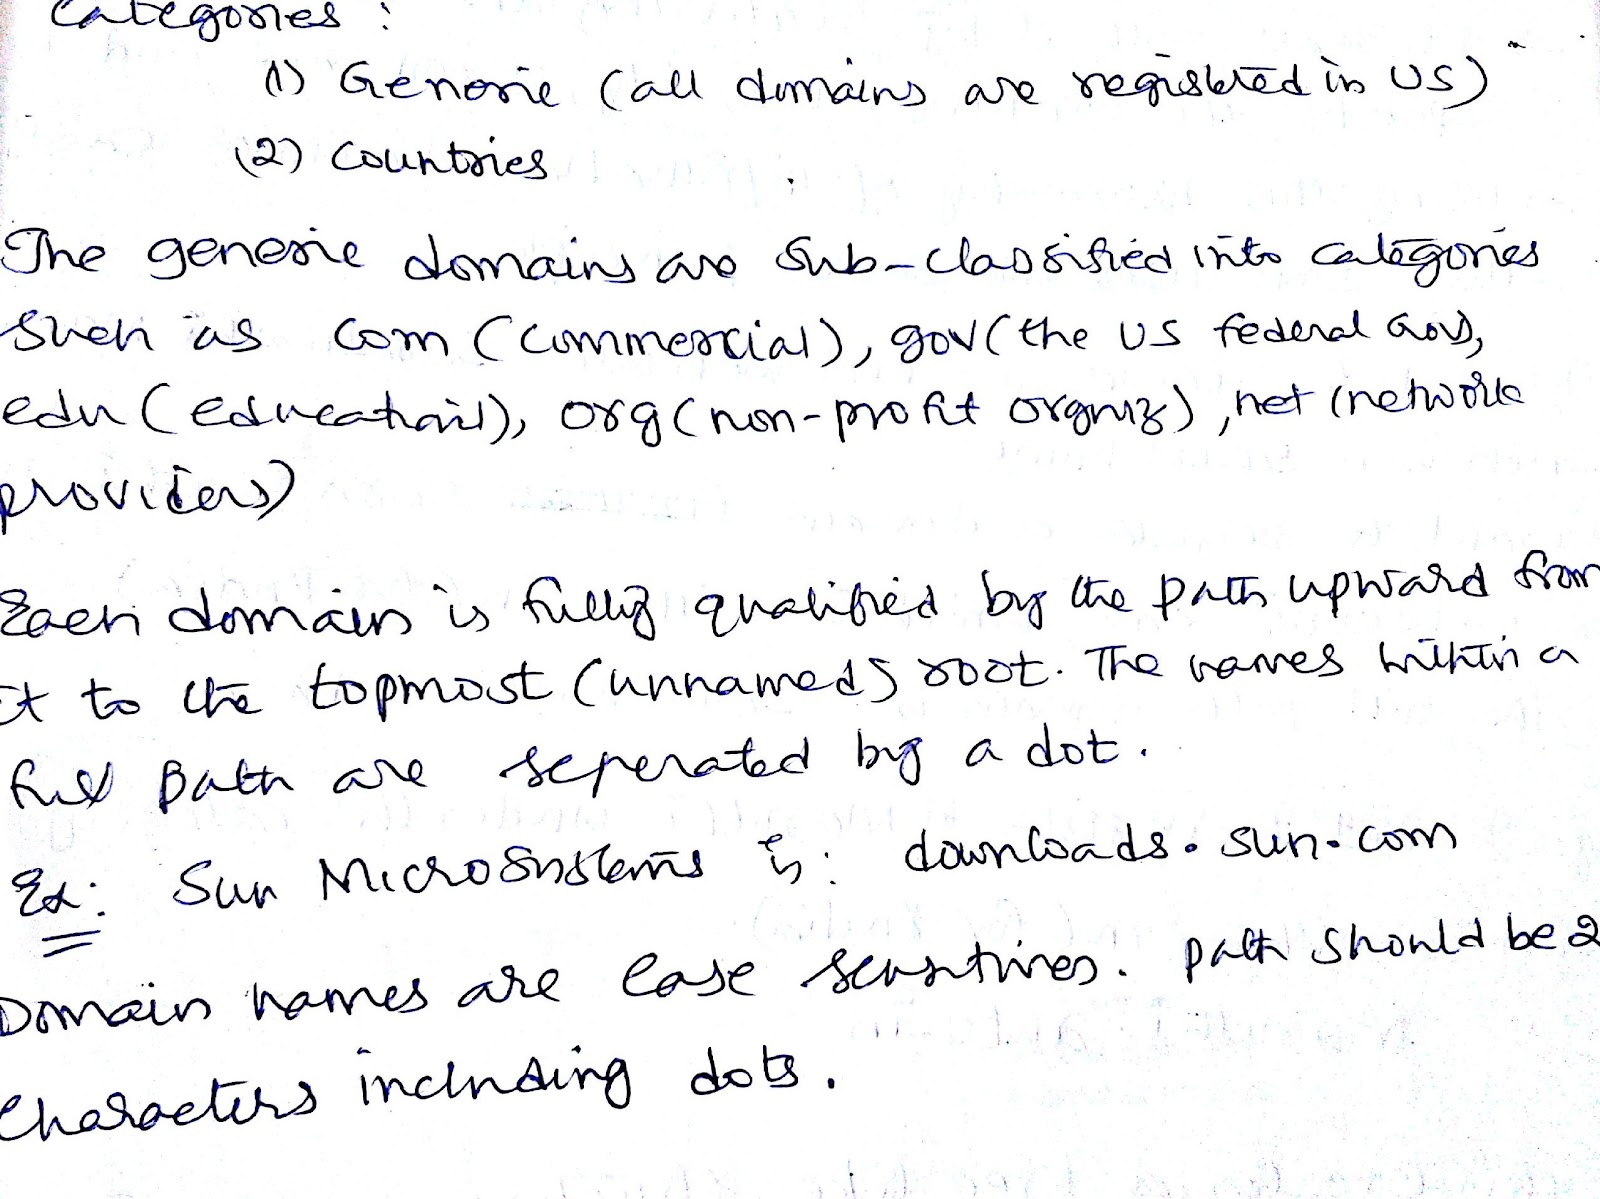 Categories :
(1) Generic (all domains are registered in US)
(2) Countries
The generic domains are sub-classified into categories
such as com (commercial), gov (the US federal Gov),
edu (educational), org (non-profit orgniz), net (network
providers)
Each domain is fully qualified by the path upward from
it to the topmost (unnamed) root. The names within a
full path are seperated by a dot.
Ex: Sun MicroSystems is: downloads.sun.com
Domain names are case sensitives. path should be 2
characters including dots.